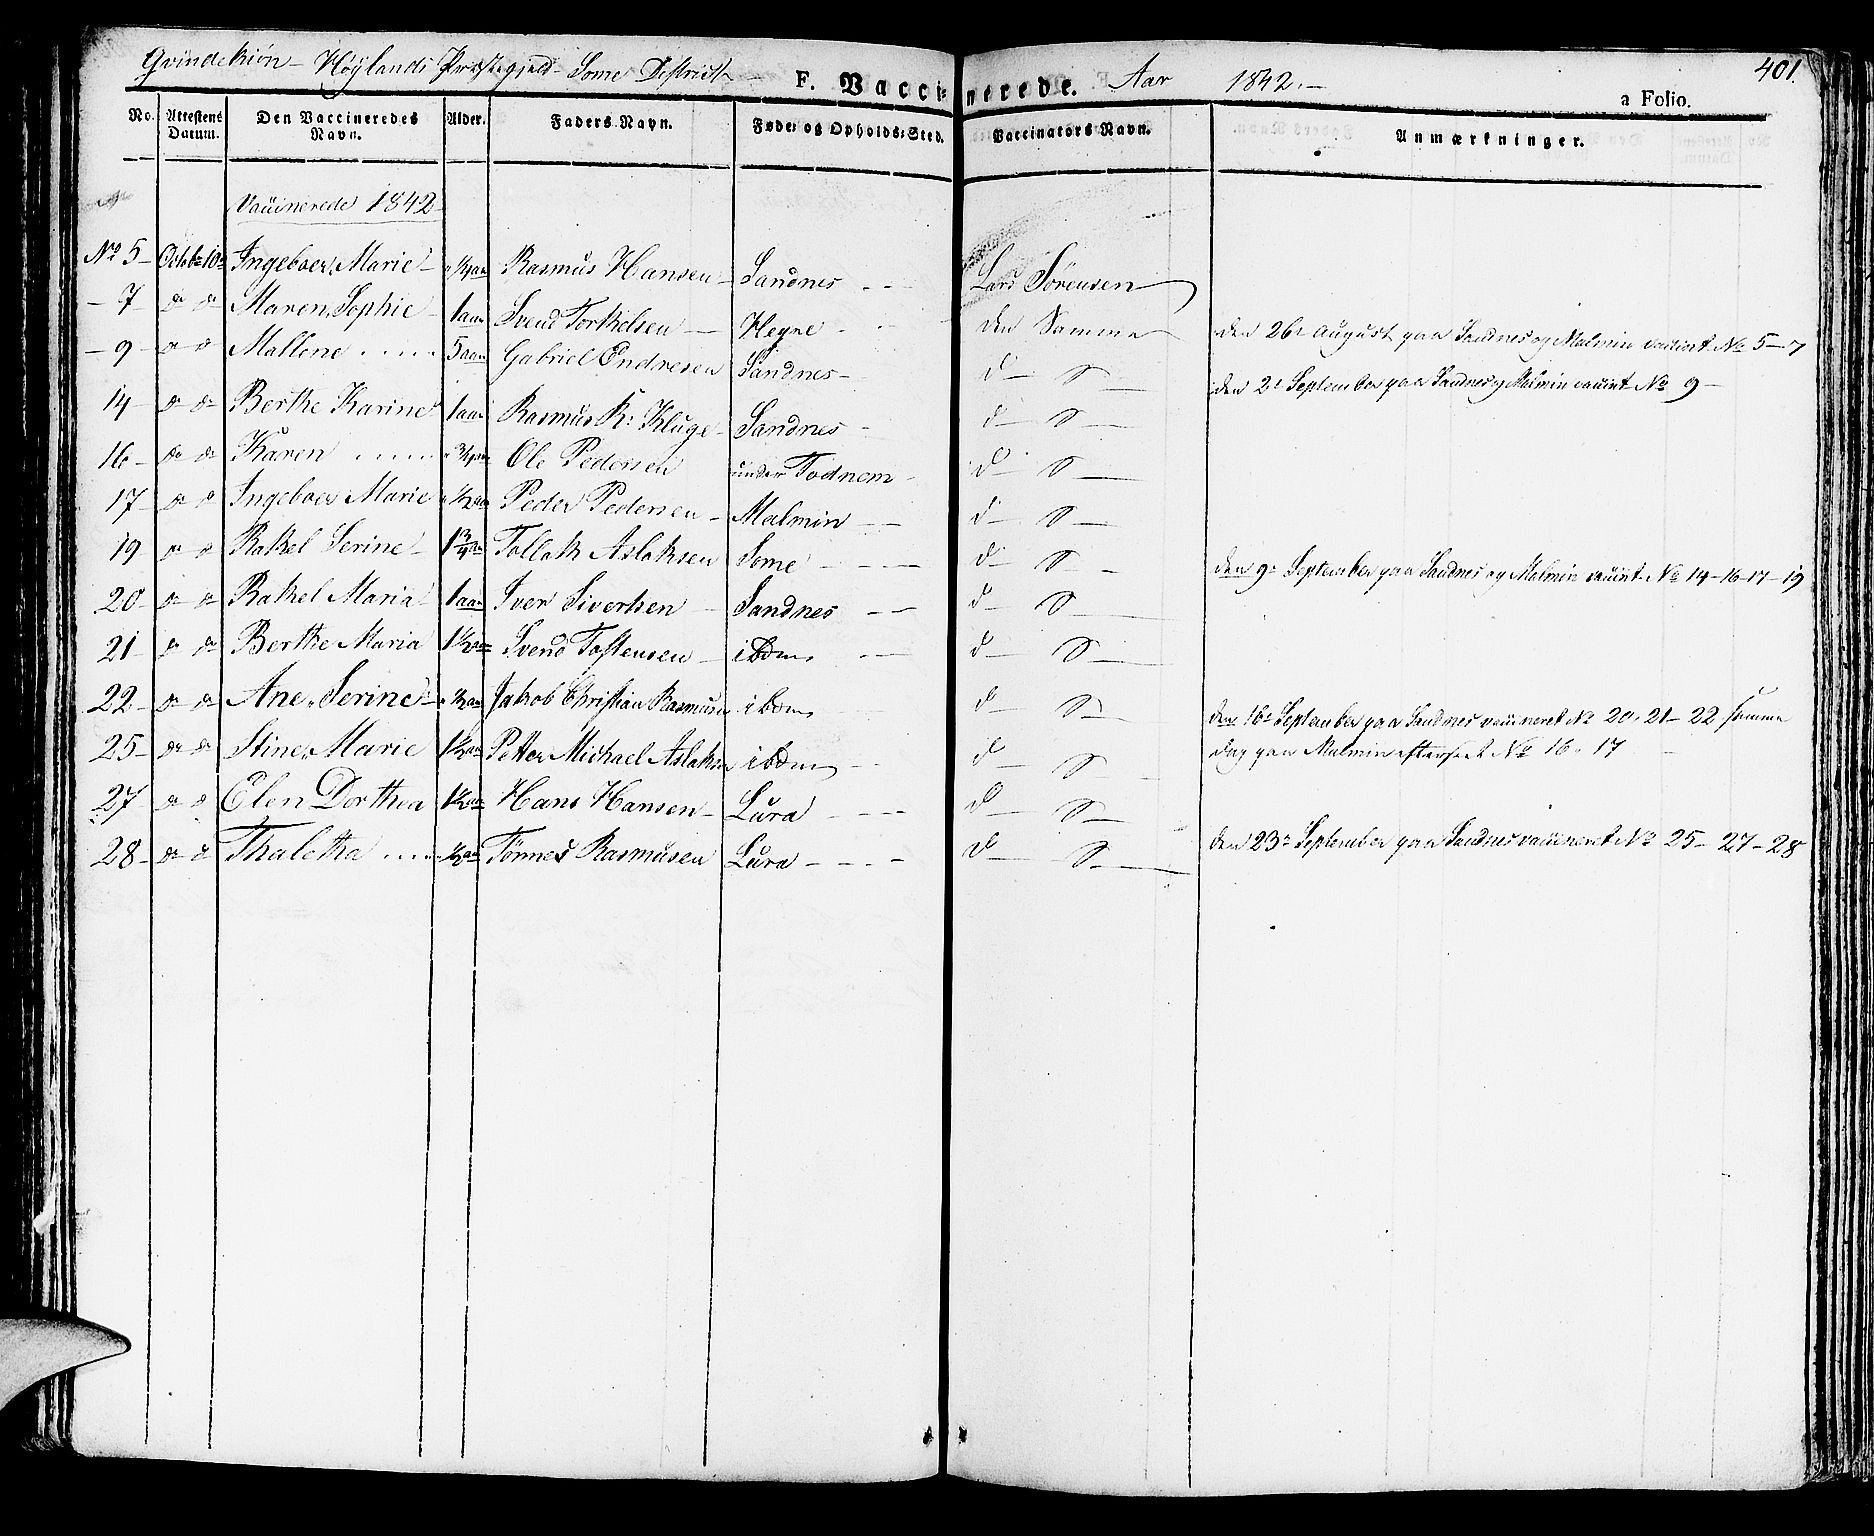 Qvindekiøn – Høylands Præstegjeld – Some District –
F. Vaccinerede. Aar 1842. –
401.
a Folio.
No. Attestens Datum. Den Vaccineredes Navn. Alder. Faders Navn. Føde- og Opholds-Sted. Vaccinators Navn. Anmærkninger.
Vaccinerede 1842
No 5 – Octob 10 Ingeboer Marie – " 1/4 aar Rasmus Hansen – Sandnes - - - Lars Sørensen
– 7 do do Maren Sophie – 1 aar Svend Torkelsen – Heyne - - den Samme
den 26 August paa Sandnes og Malmin vaccint No 5 – 7
– 9 do do Mallene . . . . . 5 aar Gabriel Endresen Sandnes – d – S –
den 2 September paa Sandnes og Malmin vaccint No 9 –
14 do do Berthe Karine 1 aar Rasmus K: Kluge – Sandnes – d – S –
16 – do do Karen . . . . . " 3/4 aar Ole Pedersen under Todnem – d – S –
17 – do do Ingeboer Marie " 1/2 aar Peder Pedersen – Malmin – – d – S –
19 – do do Rakel Serine – 1 3/4 aar Tollak Aslaksen Some - - - d – S –
den 9 September paa Sandnes og Malmin vaccint No 14 – 16 – 17 – 19
20 – do do Rakel Maria 1 aar Iver Sivertsen – Sandnes – – d – S –
21 – do do Berthe Maria 1 1/2 aar Svend Tostensen – ibdm – – d – S –
22 – do do Ane Serine – " 1/2 aar Jakob Christian Rasmusen ibdm d – S –
den 16 September paa Sandnes vaccineret No 20 – 21 – 22 samme
25 – do do Stine Marie 1 1/2 aar Petter Michael Aslaksen ibdm – d – S –
dag paa Malmin efterseet No 16 " 17
27 – do do Elen Dorthea 1 1/2 aar Hans Hansen – Lura - - - d – S –
28 – do do Thaletha . . . . . 1/2 aar Tønnes Rasmusen Lura - - - d – S –
den 23 September paa Sandnes vaccineret No 25 – 27 – 28